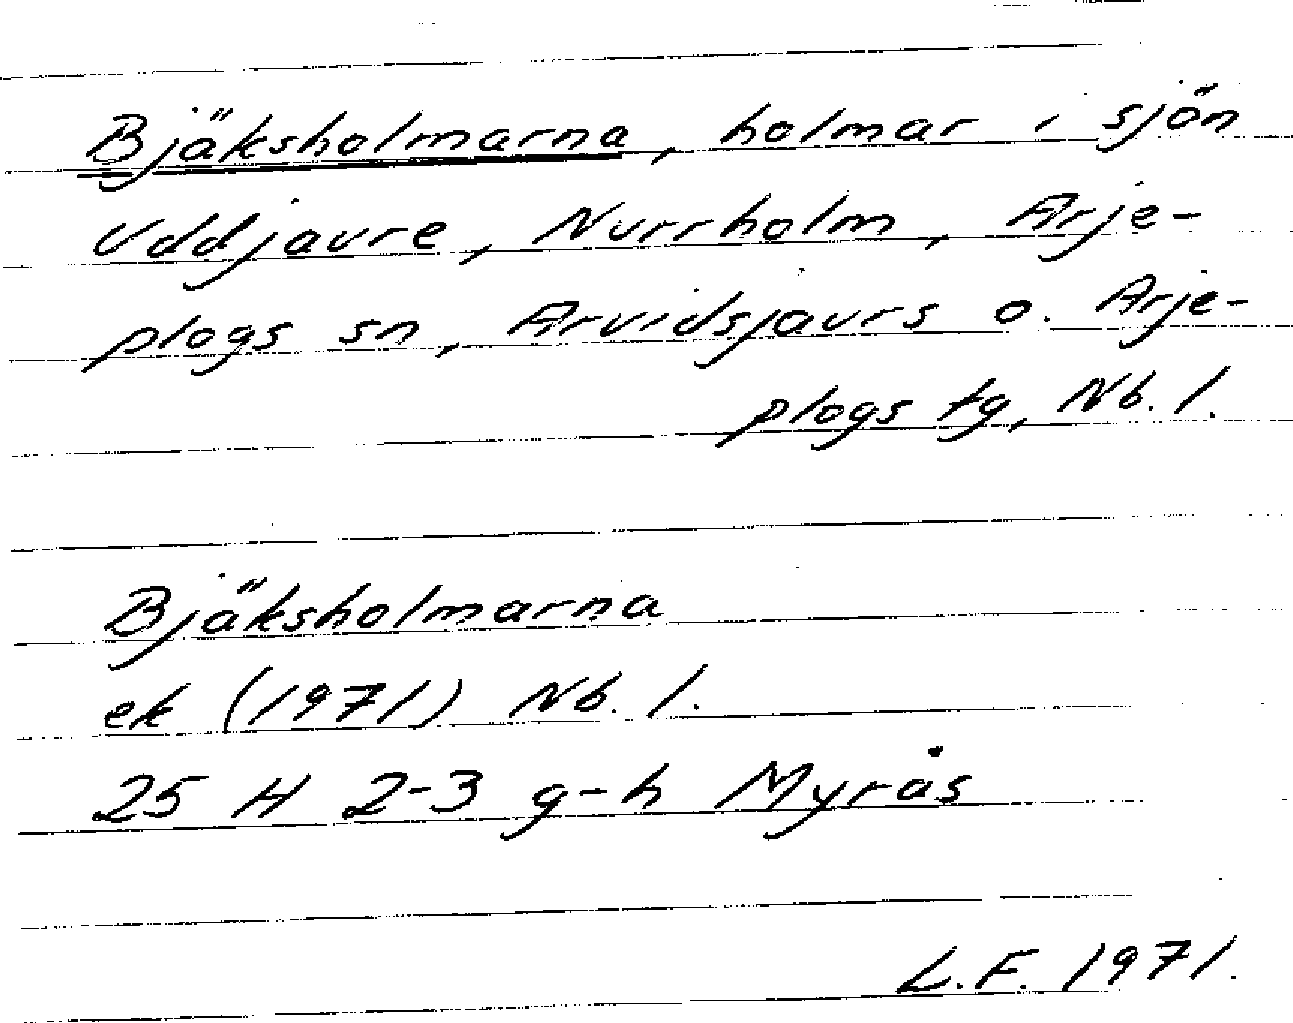 Bjäksholmarna, holmar i sjön
Uddjaure, Nurrholm, Arje-
plogs sn, Arvidsjaurs o. Arje-
plogs tg, Nb. l.
Bjäksholmarna
ek (1971) Nb. l.
25 H 2-3 g-h Myrås
L.F. 1971.